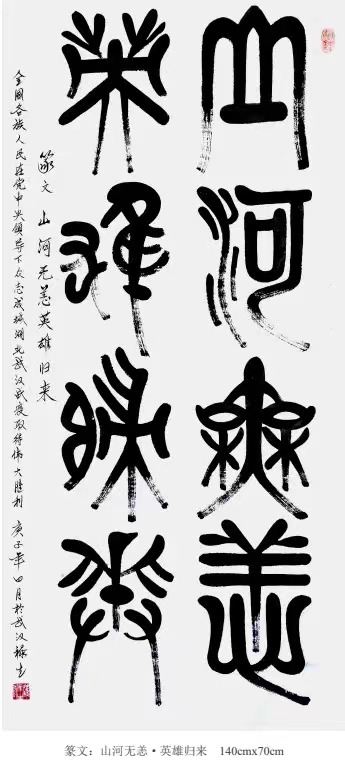 山河无恙
英雄归来
篆文 山河无恙英雄归来
全国各族人民在党中央领导下众志成城湖北武汉战疫取得伟大胜利 庚子年四月於武汉
篆文：山河无恙·英雄归来 140cmx70cm